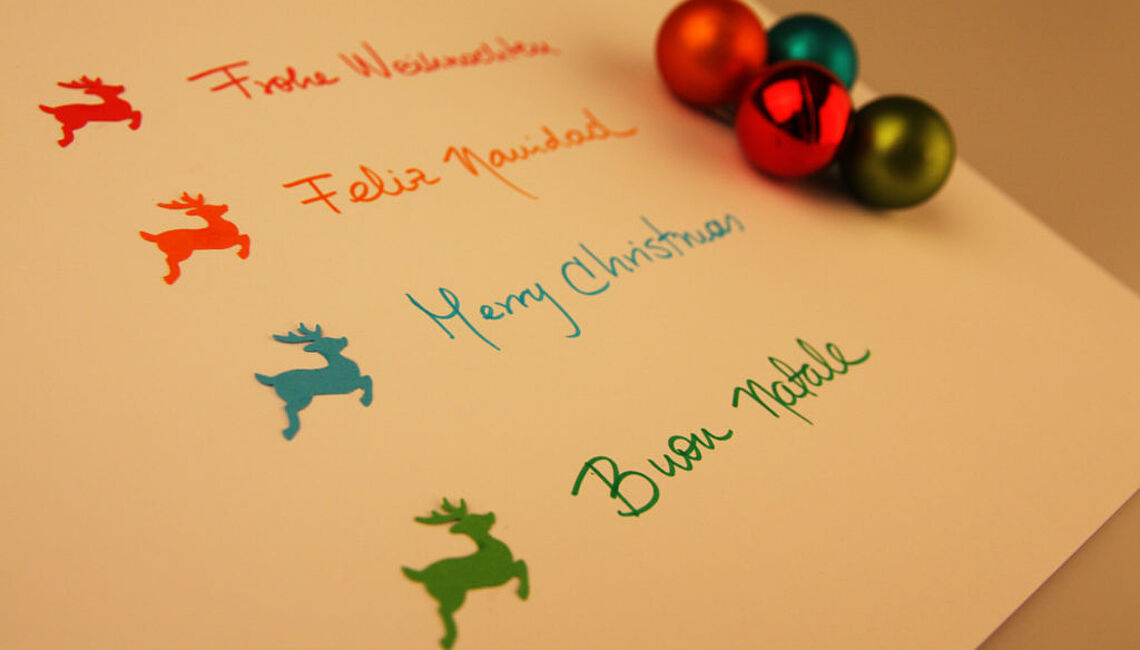 Frohe Weihnachten
Feliz Navidad
Merry Christmas
Buon Natale